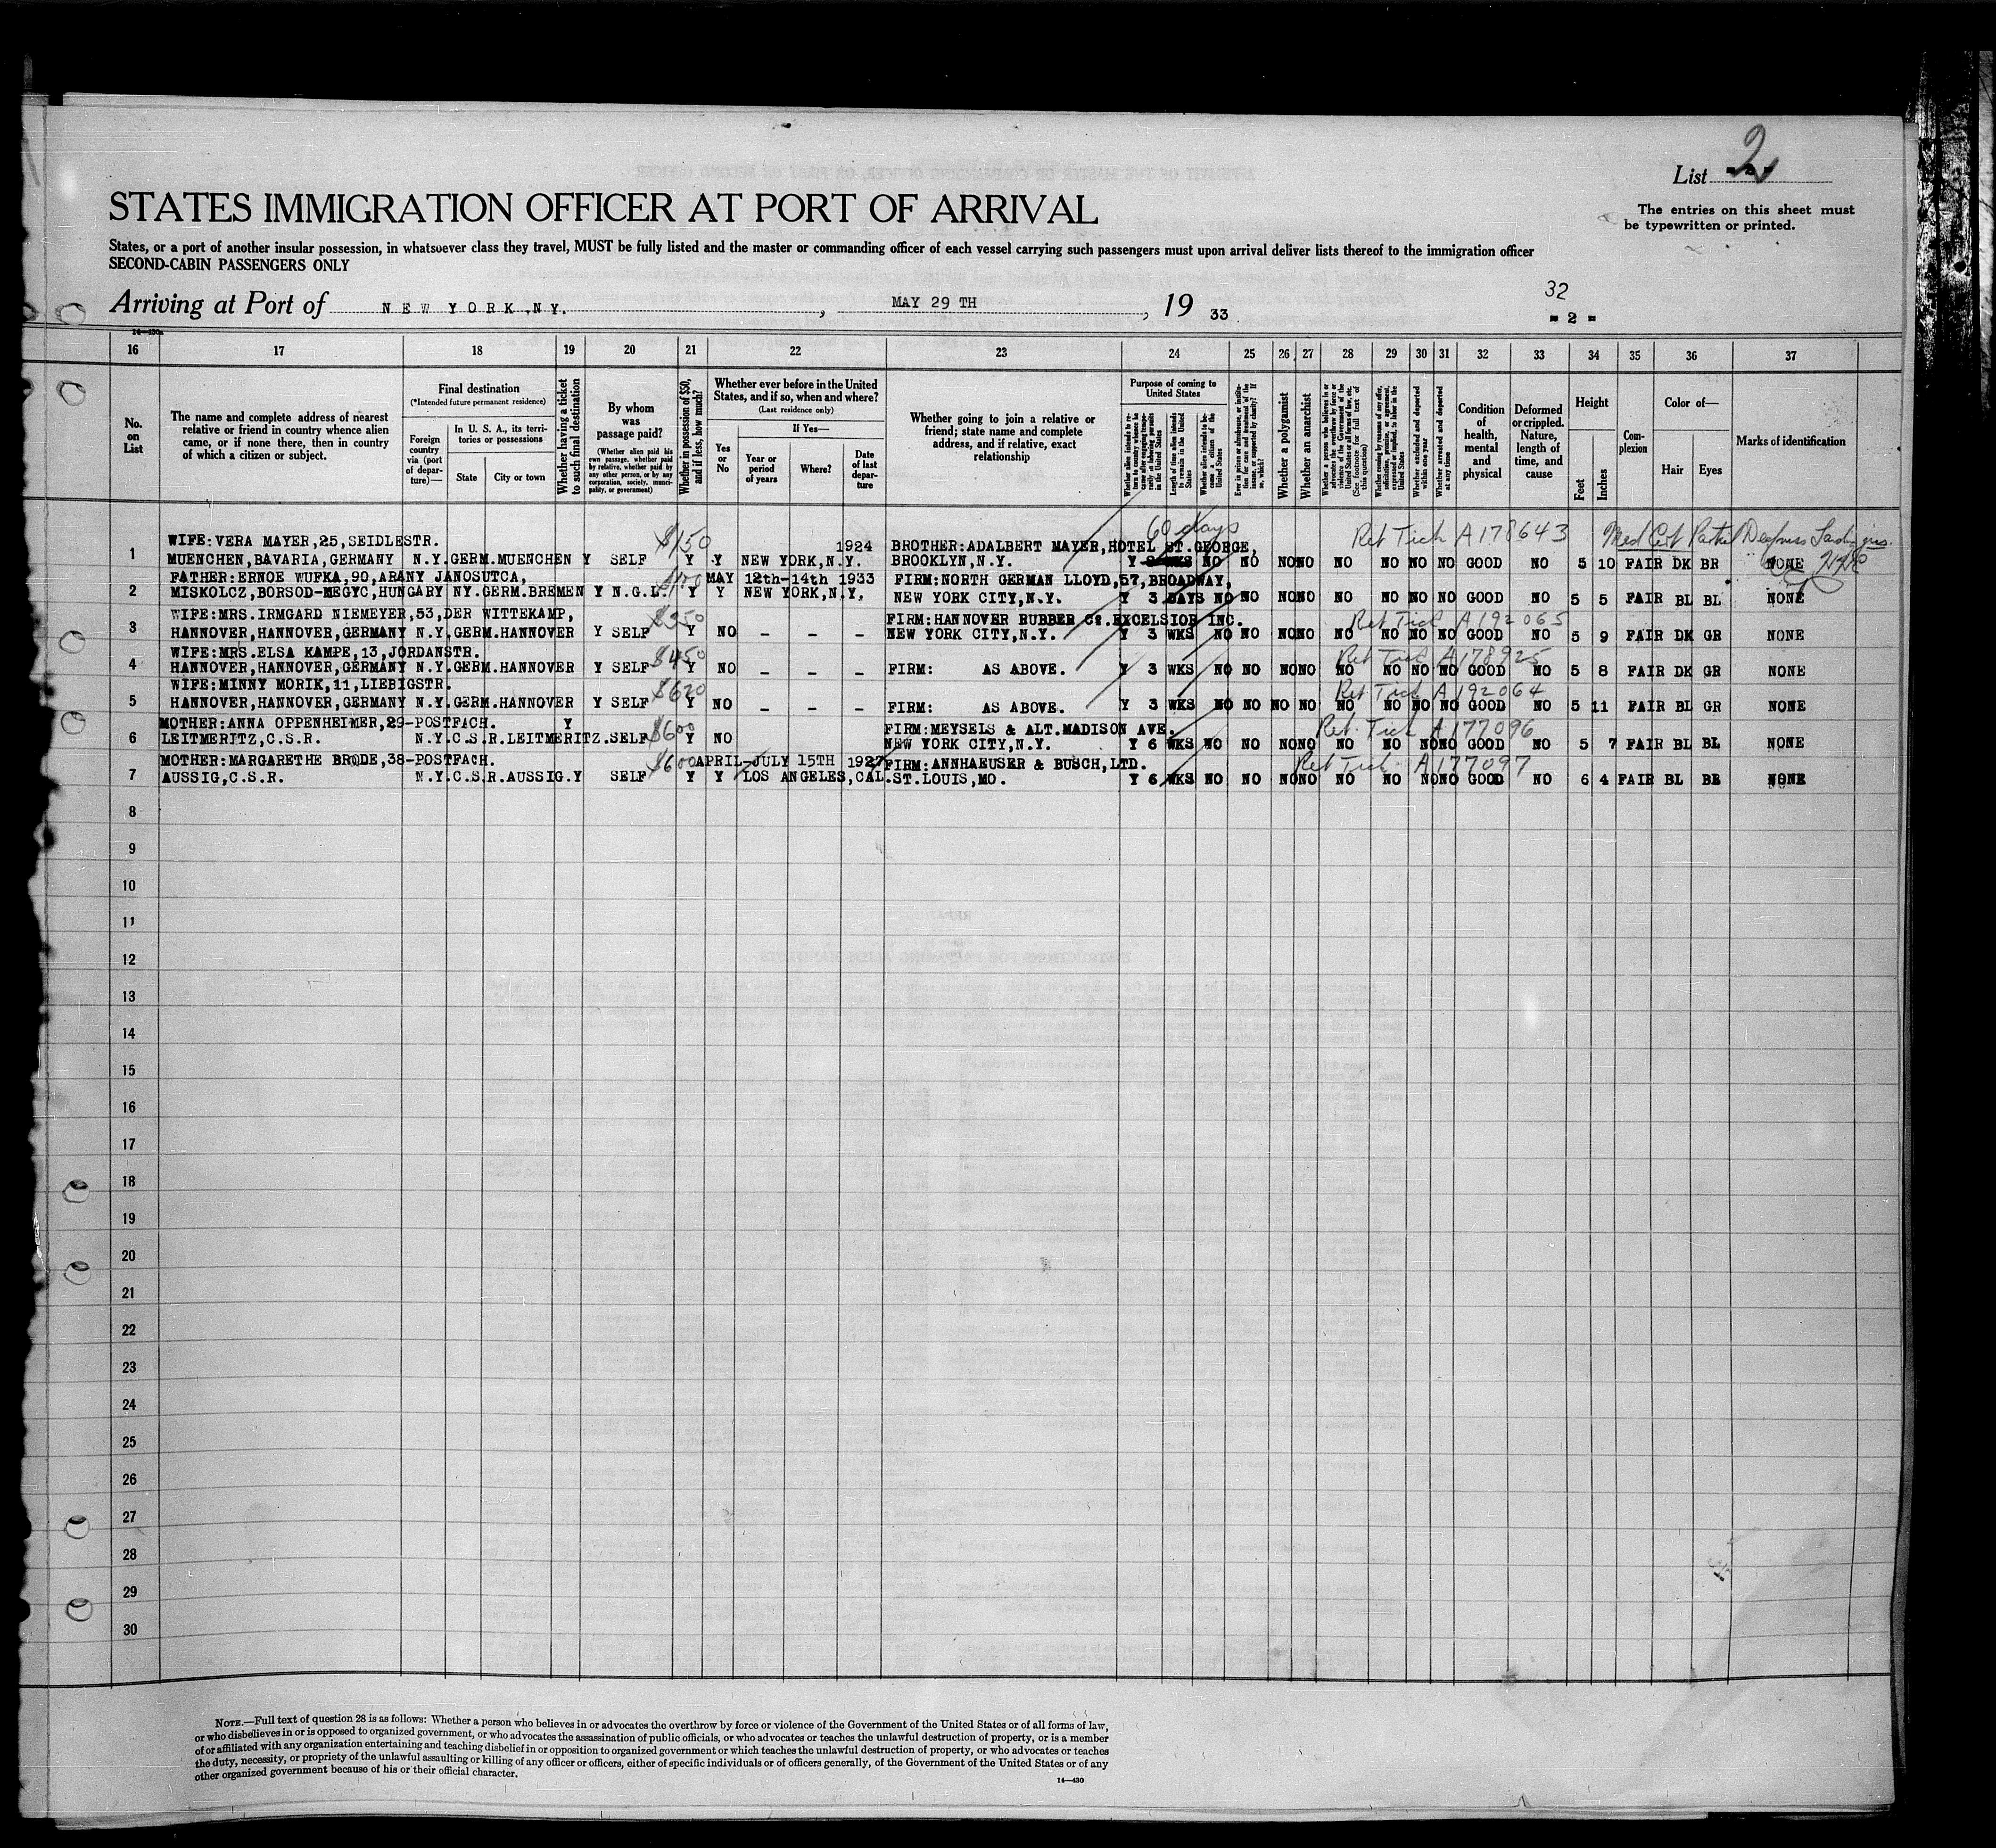 List 2
STATES IMMIGRATION OFFICER AT PORT OF ARRIVAL
The entries on this sheet must
be typewritten or printed.
States, or a port of another insular possession, in whatsoever class they travel, MUST be fully listed and the master or commanding officer of each vessel carrying such passengers must upon arrival deliver lists thereof to the immigration officer
SECOND-CABIN PASSENGERS ONLY
Arriving at Port of NEW YORK,NY. , MAY 29 TH , 19 33
32
- 2 -
14—430a
16 17 18 19 20 21 22 23 24 25 26 27 28 29 30 31 32 33 34 35 36 37
No. on List
The name and complete address of nearest relative or friend in country whence alien came, or if none there, then in country of which a citizen or subject.
Final destination
(*Intended future permanent residence)
Foreign country via (port of departure)—
In U. S. A., its territories or possessions
State
City or town
Whether having a ticket to such final destination
By whom was passage paid?
(Whether alien paid his own passage, whether paid by relative, whether paid by any other person, or by any corporation, society, municipality, or government)
Whether in possession of $50, and if less, how much?
Whether ever before in the United States, and if so, when and where?
(Last residence only)
Yes or No
If Yes—
Year or period of years
Where?
Date of last departure
Whether going to join a relative or friend; state name and complete address, and if relative, exact relationship
Purpose of coming to United States
Whether alien intends to return to country whence he came after engaging temporarily in laboring pursuits in the United States
Length of time alien intends to remain in the United States
Whether alien intends to become a citizen of the United States
Ever in prison or almshouse, or institution for care and treatment of the insane, or supported by charity? If so, which?
Whether a polygamist
Whether an anarchist
Whether a person who believes in or advocates the overthrow by force or violence of the Government of the United States or all forms of law, etc. (See footnote for full text of this question)
Whether coming by reason of any offer, solicitation, promise, or agreement, expressed or implied, to labor in the United States
Whether excluded and deported within one year
Whether arrested and deported at any time
Condition of health, mental and physical
Deformed or crippled. Nature, length of time, and cause
Height
Feet
Inches
Complexion
Color of—
Hair
Eyes
Marks of identification
WIFE:VERA MAYER,25,SEIDLESTR. $150 1924 BROTHER:ADALBERT MAYER,HOTEL ST.GEORGE, 60 days Ret Tick A178643 Med Cert Partial
1 MUENCHEN,BAVARIA,GERMANY N.Y.GERM.MUENCHEN Y SELF Y Y NEW YORK,N.Y. BROOKLYN,N.Y. Y WKS NO NO NO NO NO NO NO NO GOOD NO 5 10 FAIR DK BR NONE
FATHER:ERNOE WUFKA,90,ARANY JANOSUTCA, MAY 12th-14th 1933 FIRM:NORTH GERMAN LLOYD,57,BROADWAY,
2 MISKOLCZ,BORSOD-MEGYC,HUNGARY NY.GERM.BREMEN Y N.G.L. Y Y NEW YORK,N.Y. NEW YORK CITY,N.Y. Y 3 DAYS NO NO NO NO NO NO NO NO GOOD NO 5 5 FAIR BL BL NONE
WIFE:MRS.IRMGARD NIEMEYER,53,DER WITTEKAMP, $250 FIRM:HANNOVER RUBBER Co.EXCELSIOR INC. Ret Tick A192065
3 HANNOVER,HANNOVER,GERMANY N.Y.GERM.HANNOVER Y SELF Y NO - - - NEW YORK CITY,N.Y. Y 3 WKS NO NO NO NO NO NO NO NO GOOD NO 5 9 FAIR DK GR NONE
WIFE:MRS.ELSA KAMPE,13,JORDANSTR. $450 Ret Tick A178925
4 HANNOVER,HANNOVER,GERMANY N.Y.GERM.HANNOVER Y SELF Y NO - - - FIRM: AS ABOVE. Y 3 WKS NO NO NO NO NO NO NO NO GOOD NO 5 8 FAIR DK GR NONE
WIFE:MINNY MORIK,11,LIEBIGSTR. $620 Ret Tick A192064
5 HANNOVER,HANNOVER,GERMANY N.Y.GERM.HANNOVER Y SELF Y NO - - - FIRM: AS ABOVE. Y 3 WKS NO NO NO NO NO NO NO NO GOOD NO 5 11 FAIR BL GR NONE
MOTHER:ANNA OPPENHEIMER,29-POSTFACH. Y $600 FIRM:MEYSELS & ALT.MADISON AVE. Ret Tick A177096
6 LEITMERITZ,C.S.R. N.Y.C.S.R.LEITMERITZ.SELF Y NO NEW YORK CITY,N.Y. Y 6 WKS NO NO NO NO NO NO NO NO GOOD NO 5 7 FAIR BL BL NONE
MOTHER:MARGARETHE BRODE,38-POSTFACH. $600 APRIL-JULY 15TH 1927 FIRM:ANNHAEUSER & BUSCH,LTD. Ret Tick A177097
7 AUSSIG,C.S.R. N.Y.C.S.R.AUSSIG.Y SELF Y Y LOS ANGELES,CAL. ST.LOUIS,MO. Y 6 WKS NO NO NO NO NO NO NO NO GOOD NO 6 4 FAIR BL NONE
8
9
10
11
12
13
14
15
16
17
18
19
20
21
22
23
24
25
26
27
28
29
30
NOTE.—Full text of question 28 is as follows: Whether a person who believes in or advocates the overthrow by force or violence of the Government of the United States or of all forms of law,
or who disbelieves in or is opposed to organized government, or who advocates the assassination of public officials, or who advocates or teaches the unlawful destruction of property, or is a member
of or affiliated with any organization entertaining and teaching disbelief in or opposition to organized government or which teaches the unlawful destruction of property, or who advocates or teaches
the duty, necessity, or propriety of the unlawful assaulting or killing of any officer or officers, either of specific individuals or of officers generally, of the Government of the United States or of any
other organized government because of his or their official character.
14—430